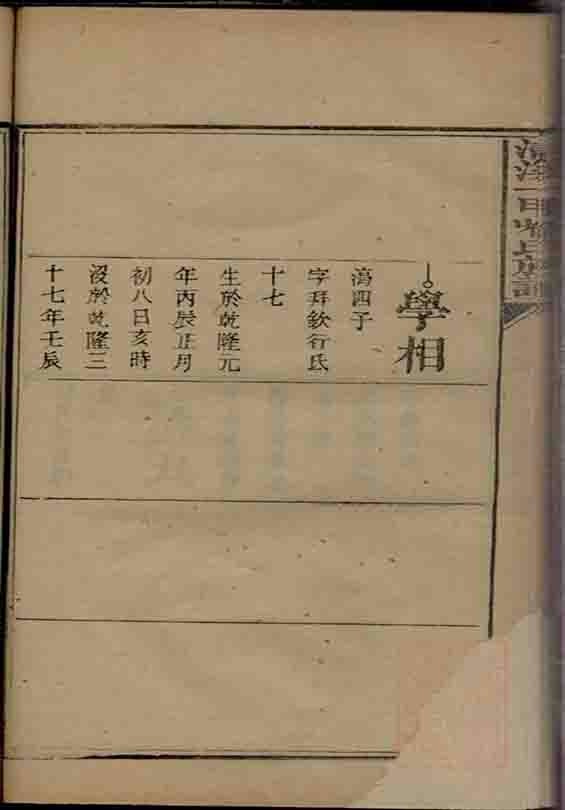 學相
萬四子
字拜欽行氏
十七
生於乾隆元
年丙辰正月
初八日亥時
沒於乾隆三
十七年壬辰